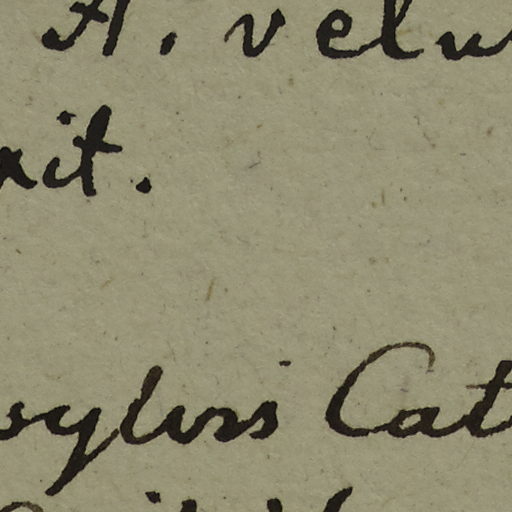 A. velu
it.
sylvis Cat